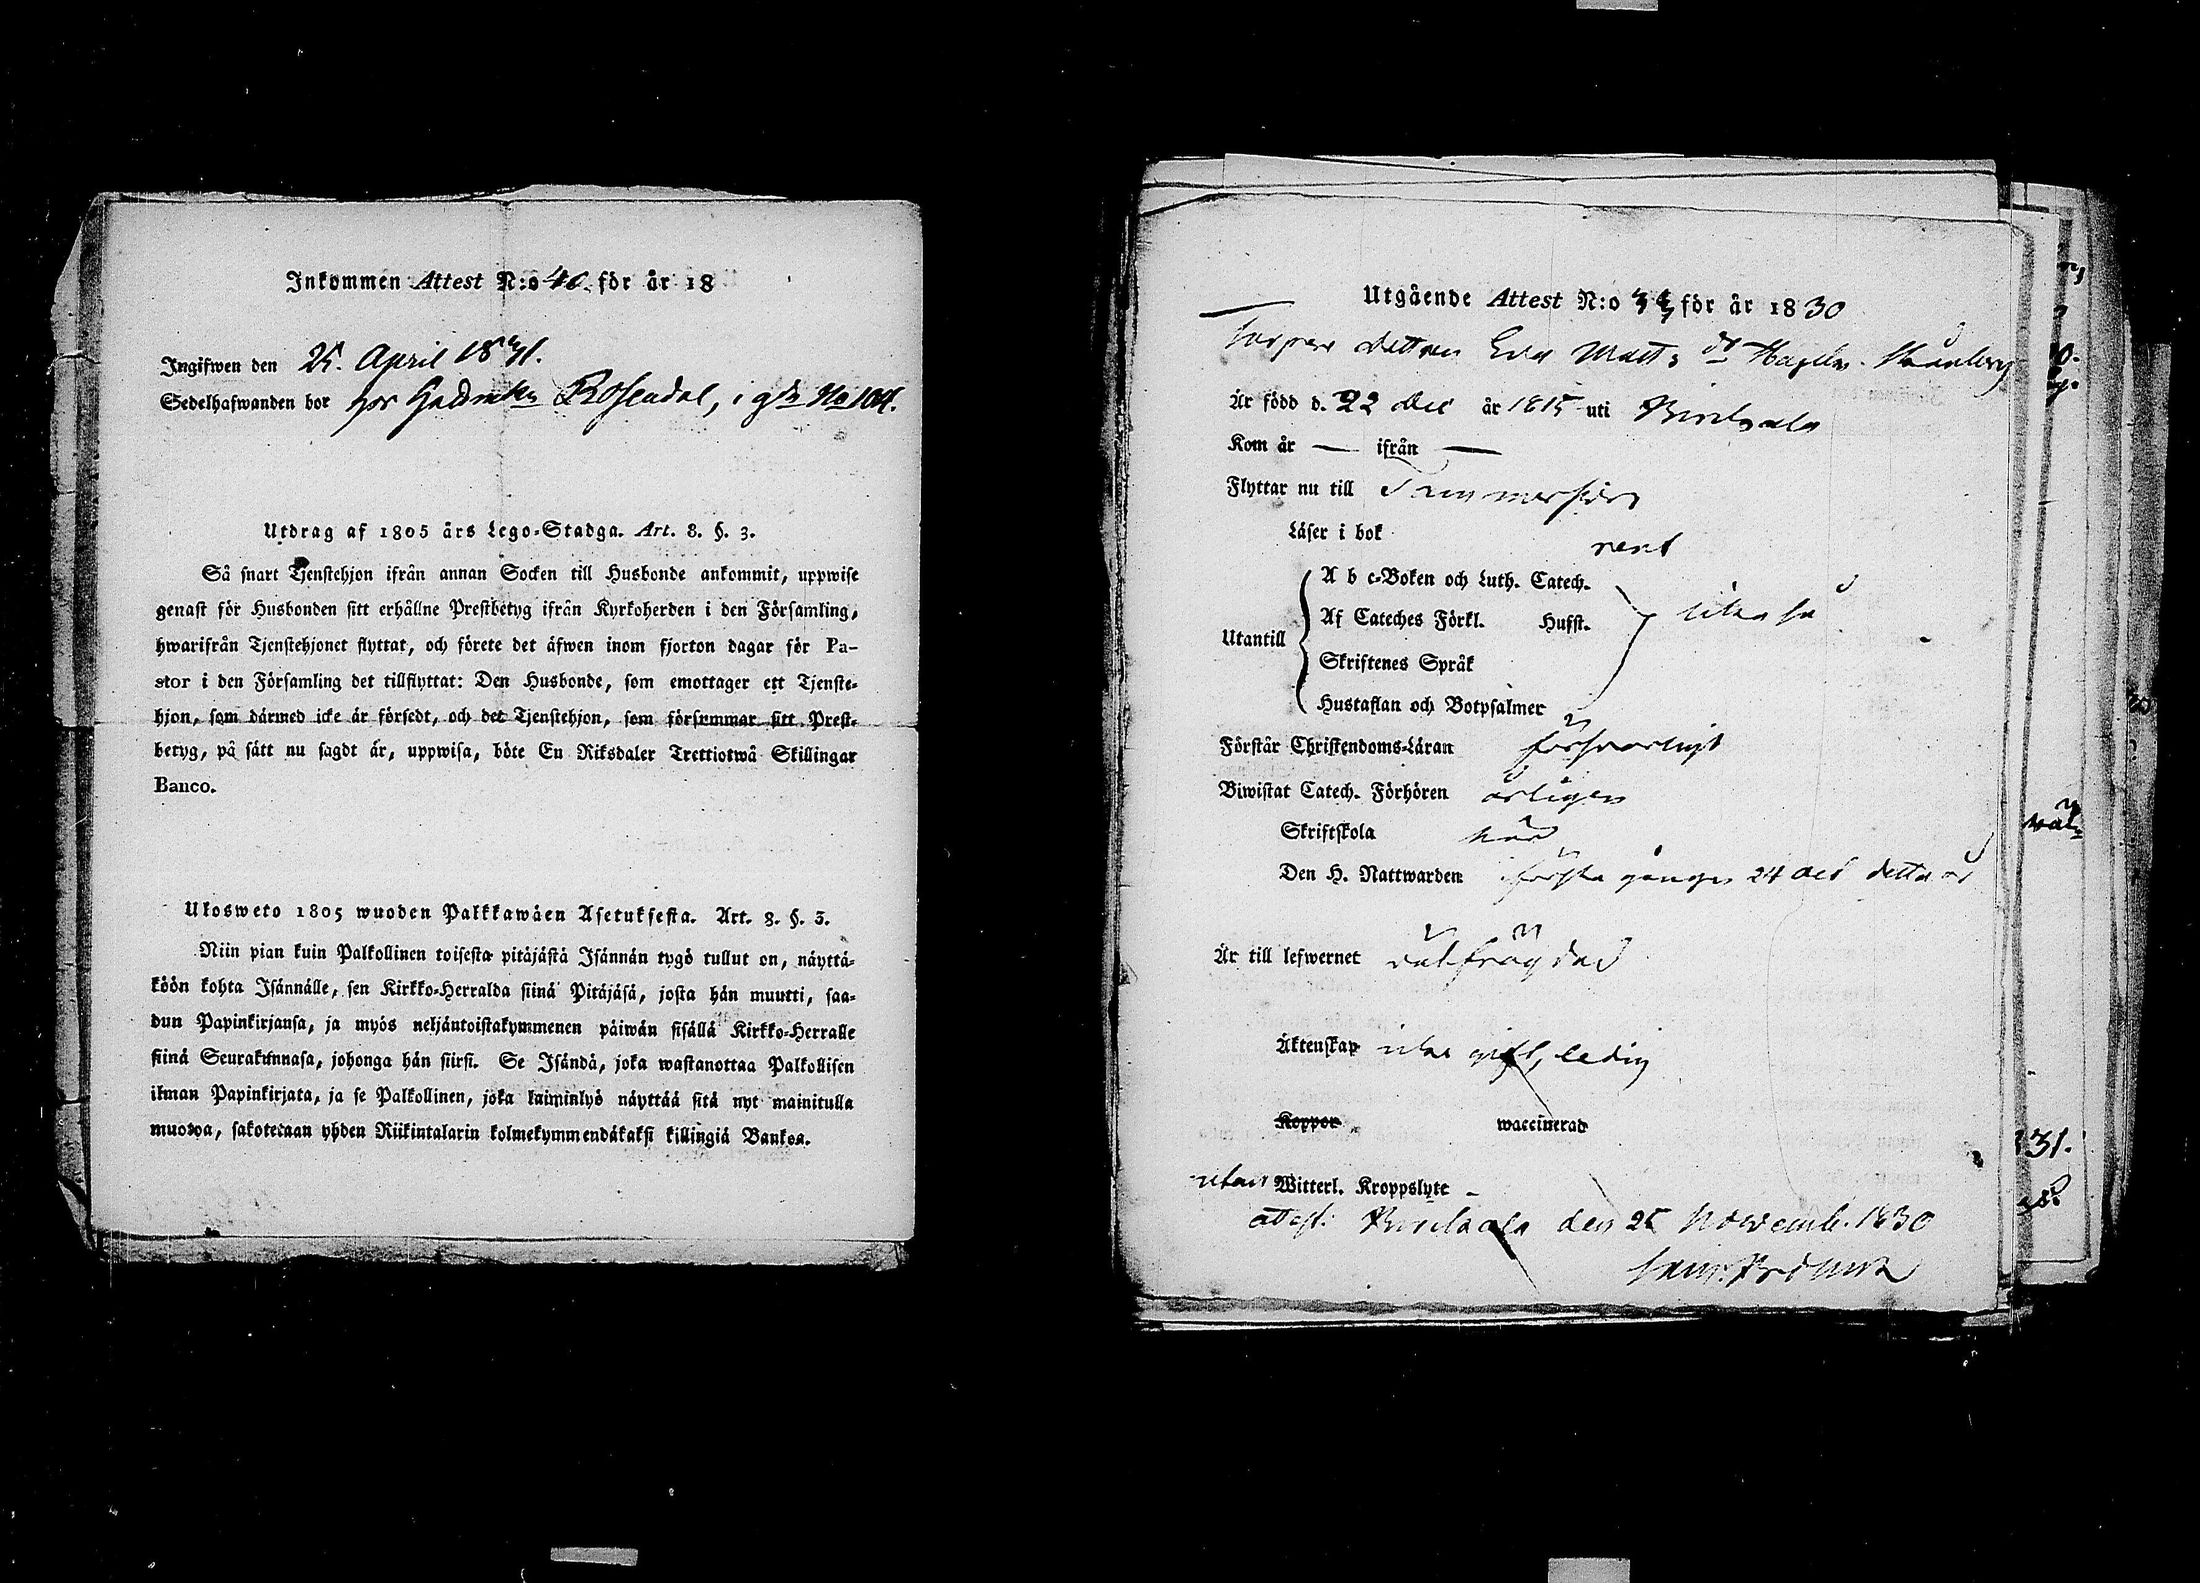 Inkommen Attest N:o 40. för år 18
Ingifwen den 25. April 1831.
Sedelhafwanden bor hos Rosendal, i gdn No 104.
Utdrag af 1805 års Lego-Stadga. Art. 8. §. 3.
Så snart Tjenstehjon ifrån annan Socken till Husbonde ankommit, uppwise
genast för Husbonden sitt erhållne Prestbetyg ifrån Kyrkoherden i den Församling,
hwarifrån Tjenstehjonet flyttat, och förete det äfwen inom fjorton dagar för Pa-
stor i den Församling det tillflyttat: Den Husbonde, som emottager ett Tjenste-
hjon, som därmed icke är försedt, och det Tjenstehjon, som försummar sitt Prest-
betyg, på sätt nu sagdt är, uppwisa, böte En Riksdaler Trettiotwå Skillingar
Banco.
Ulosweto 1805 wuoden Palkkawäen Asetuksesta. Art. 8. §. 3.
Niin pian kuin Palkollinen toisesta pitäjästä Isännän tygö tullut on, näyttä-
köön kohta Isännälle, sen Kirkko-Herralda siinä Pitäjäsä, josta hän muutti, saa-
dun Papinkirjansa, ja myös neljäntoistakymmenen päiwän sisällä Kirkko-Herralle
siinä Seurakunnasa, johonga hän siirsi. Se Isändä, joka wastanottaa Palkollisen
ilman Papinkirjata, ja se Palkollinen, joka laiminlyö näyttää sitä nyt mainitulla
muotoa, sakotetaan yhden Riikintalarin kolmekymmendäkaksi killingiä Bankoa.
Utgående Attest N:o för år 1830
dottren Eva Matts dr
Är född d. 22 Dec år 1815 uti Birckala
Kom år — ifrån —
Flyttar nu till Tammerfors
Läser i bok rent
Utantill
A b c-Boken och Luth. Catech.
Af Cateches Förkl. Husst.
Skriftenes Språk
Hustaflan och Botpsalmer
lika så
Förstår Christendoms-Läran försvarligt
Biwistat Catech. Förhören årligen
Skriftskola
Den H. Nattwarden första gången 24 oct detta år
Är till lefwernet välfrägdad
Äktenskap icke gift, ledig
Koppor waccinerad
utan Witterl. Kroppslyte –
attest. Birckala den 25 Novemb. 1830